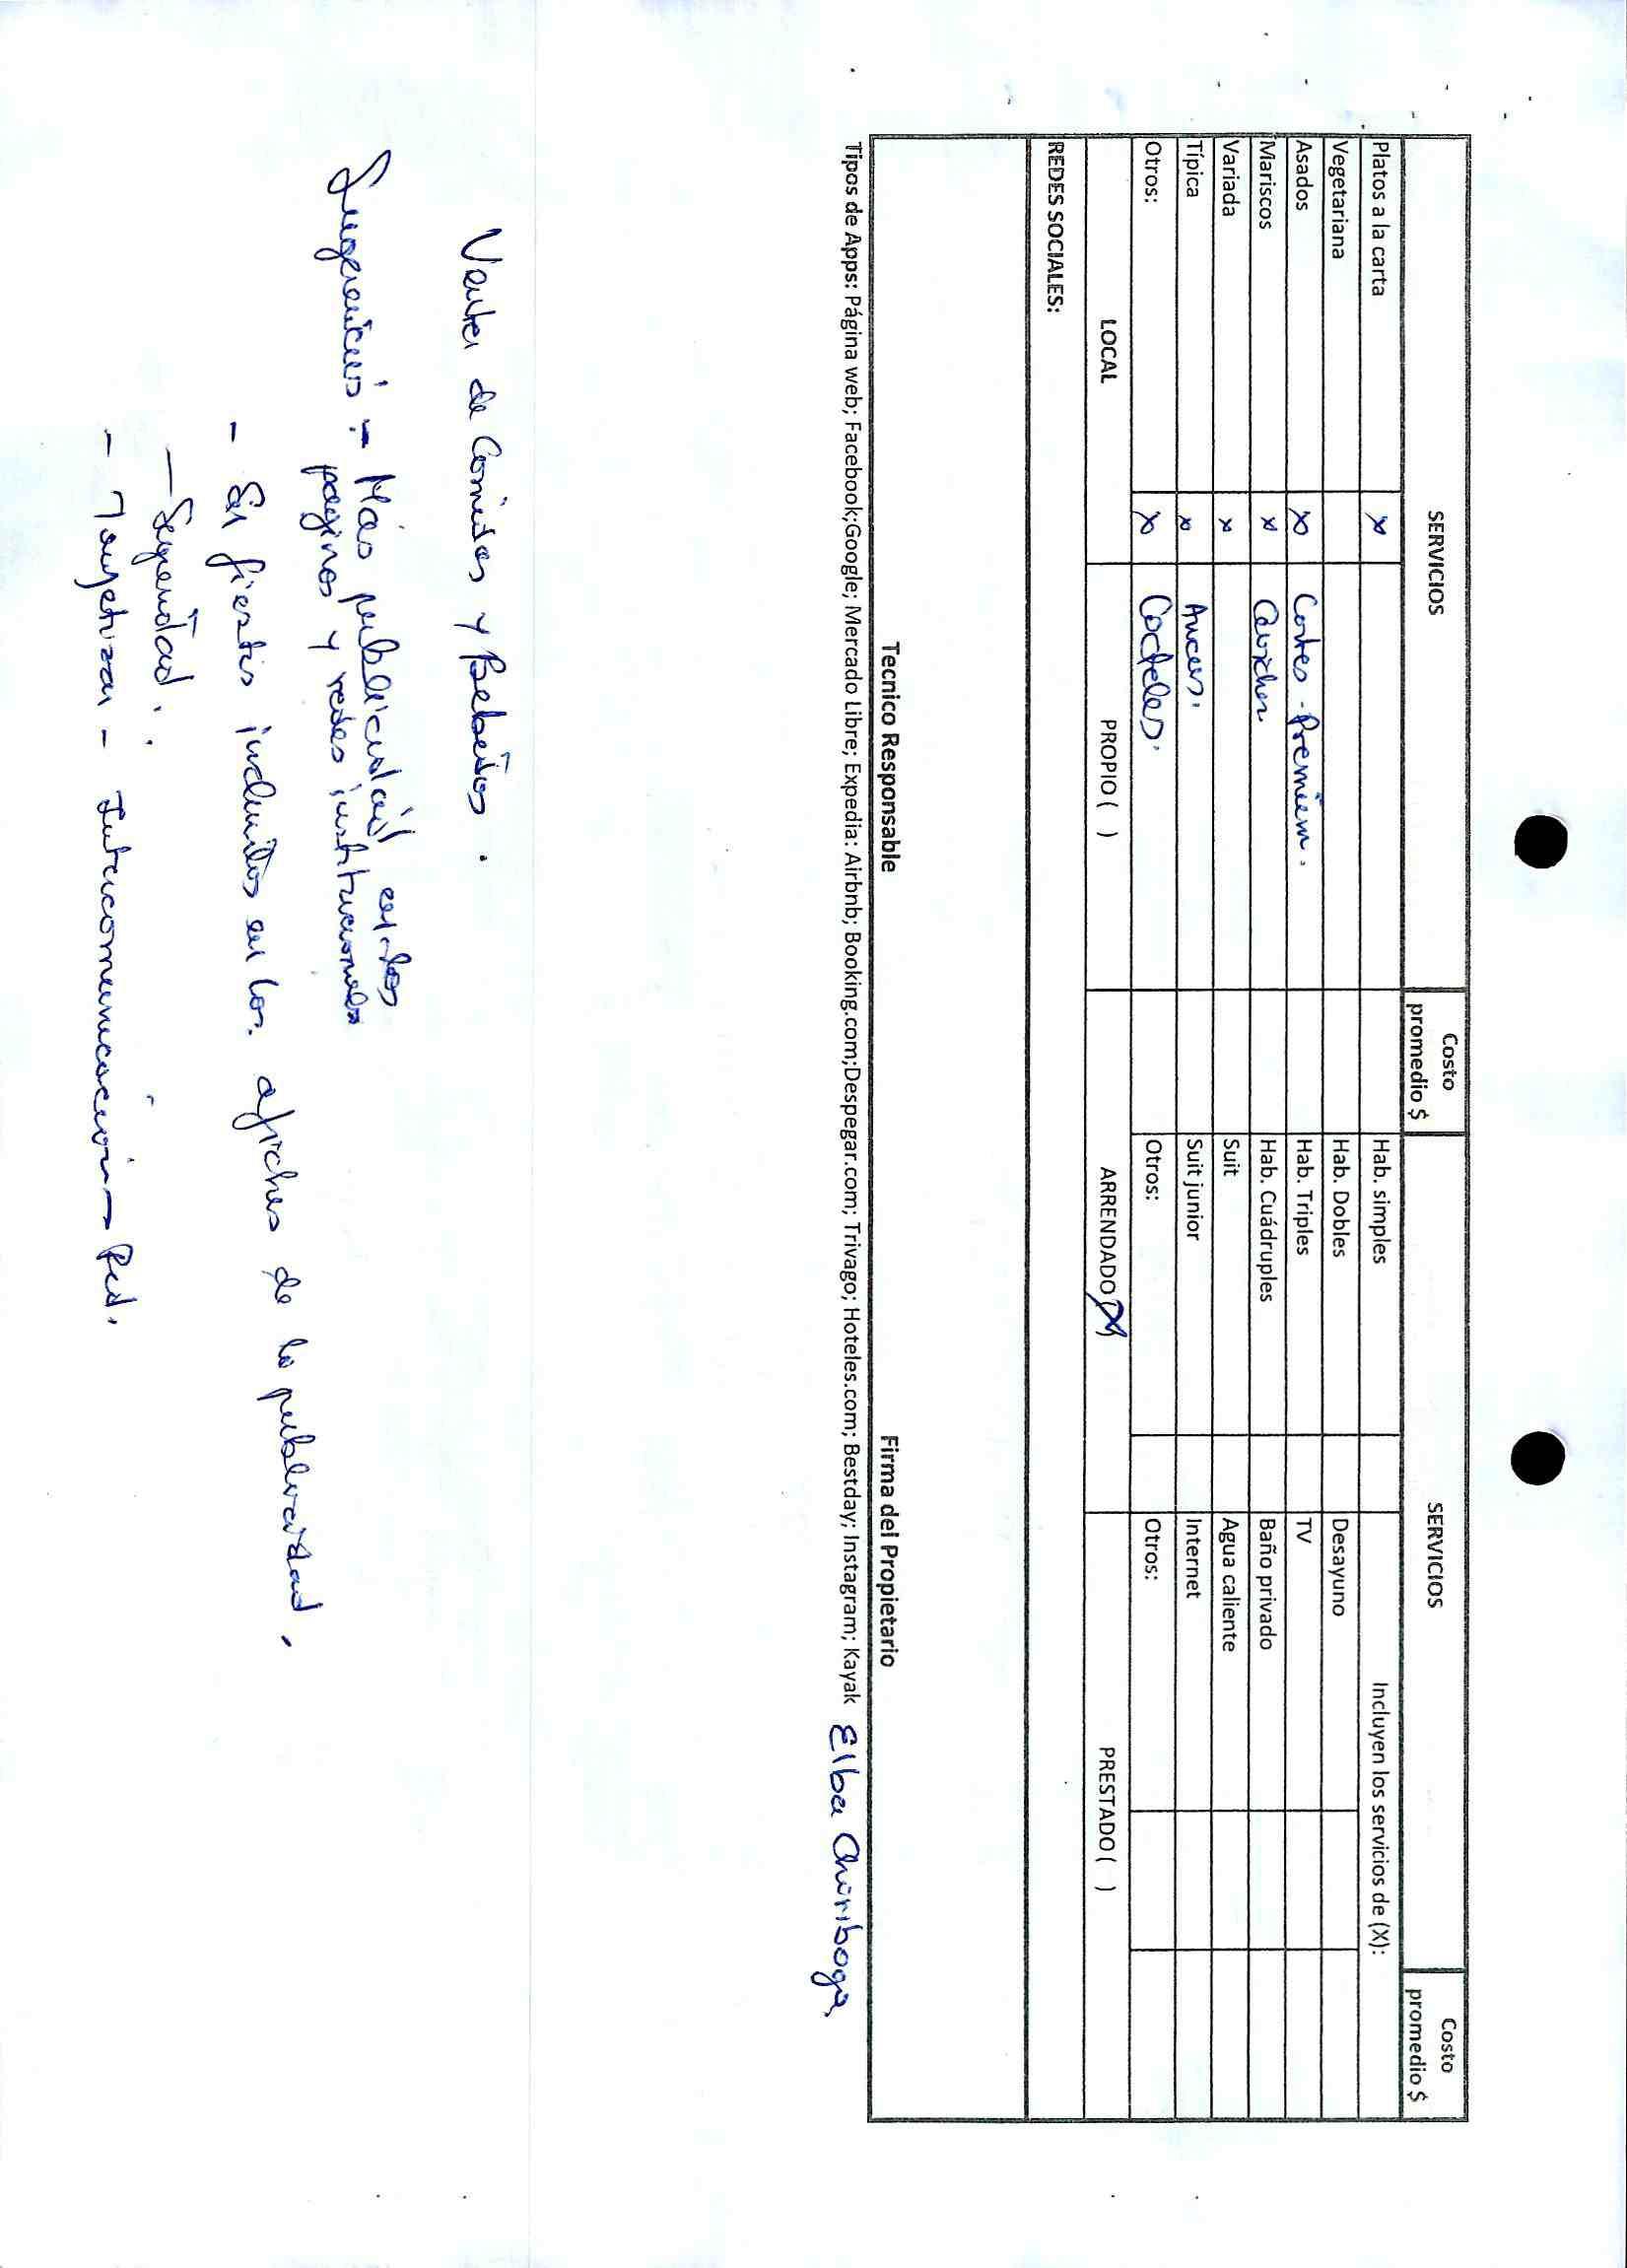 SERVICIOS Costo promedio $ SERVICIOS Costo promedio $
Platos a la carta x Hab. simples Incluyen los servicios de (X):
Vegetariana Hab. Dobles Desayuno
Asados x Cortes - Premium. Hab. Triples TV
Mariscos x Hab. Cuádruples Baño privado
Variada x Suit Agua caliente
Típica x Suit junior Internet
Otros: x Cocteles. Otros: Otros:
LOCAL PROPIO ( ) ARRENDADO (X) PRESTADO ( )
REDES SOCIALES:
Tecnico Responsable Firma del Propietario
Tipos de Apps: Página web; Facebook;Google; Mercado Libre; Expedia: Airbnb; Booking.com;Despegar.com; Trivago; Hoteles.com; Bestday; Instagram; Kayak
Elba Chiriboga
Venta de Comidas y Bebidas.
Sugerencias: - Más publicidad en las
páginas y redes institucionales
- En fiestas incluidos en los afiches de la publicidad.
- Seguridad.
- Intercomunicación - Red.